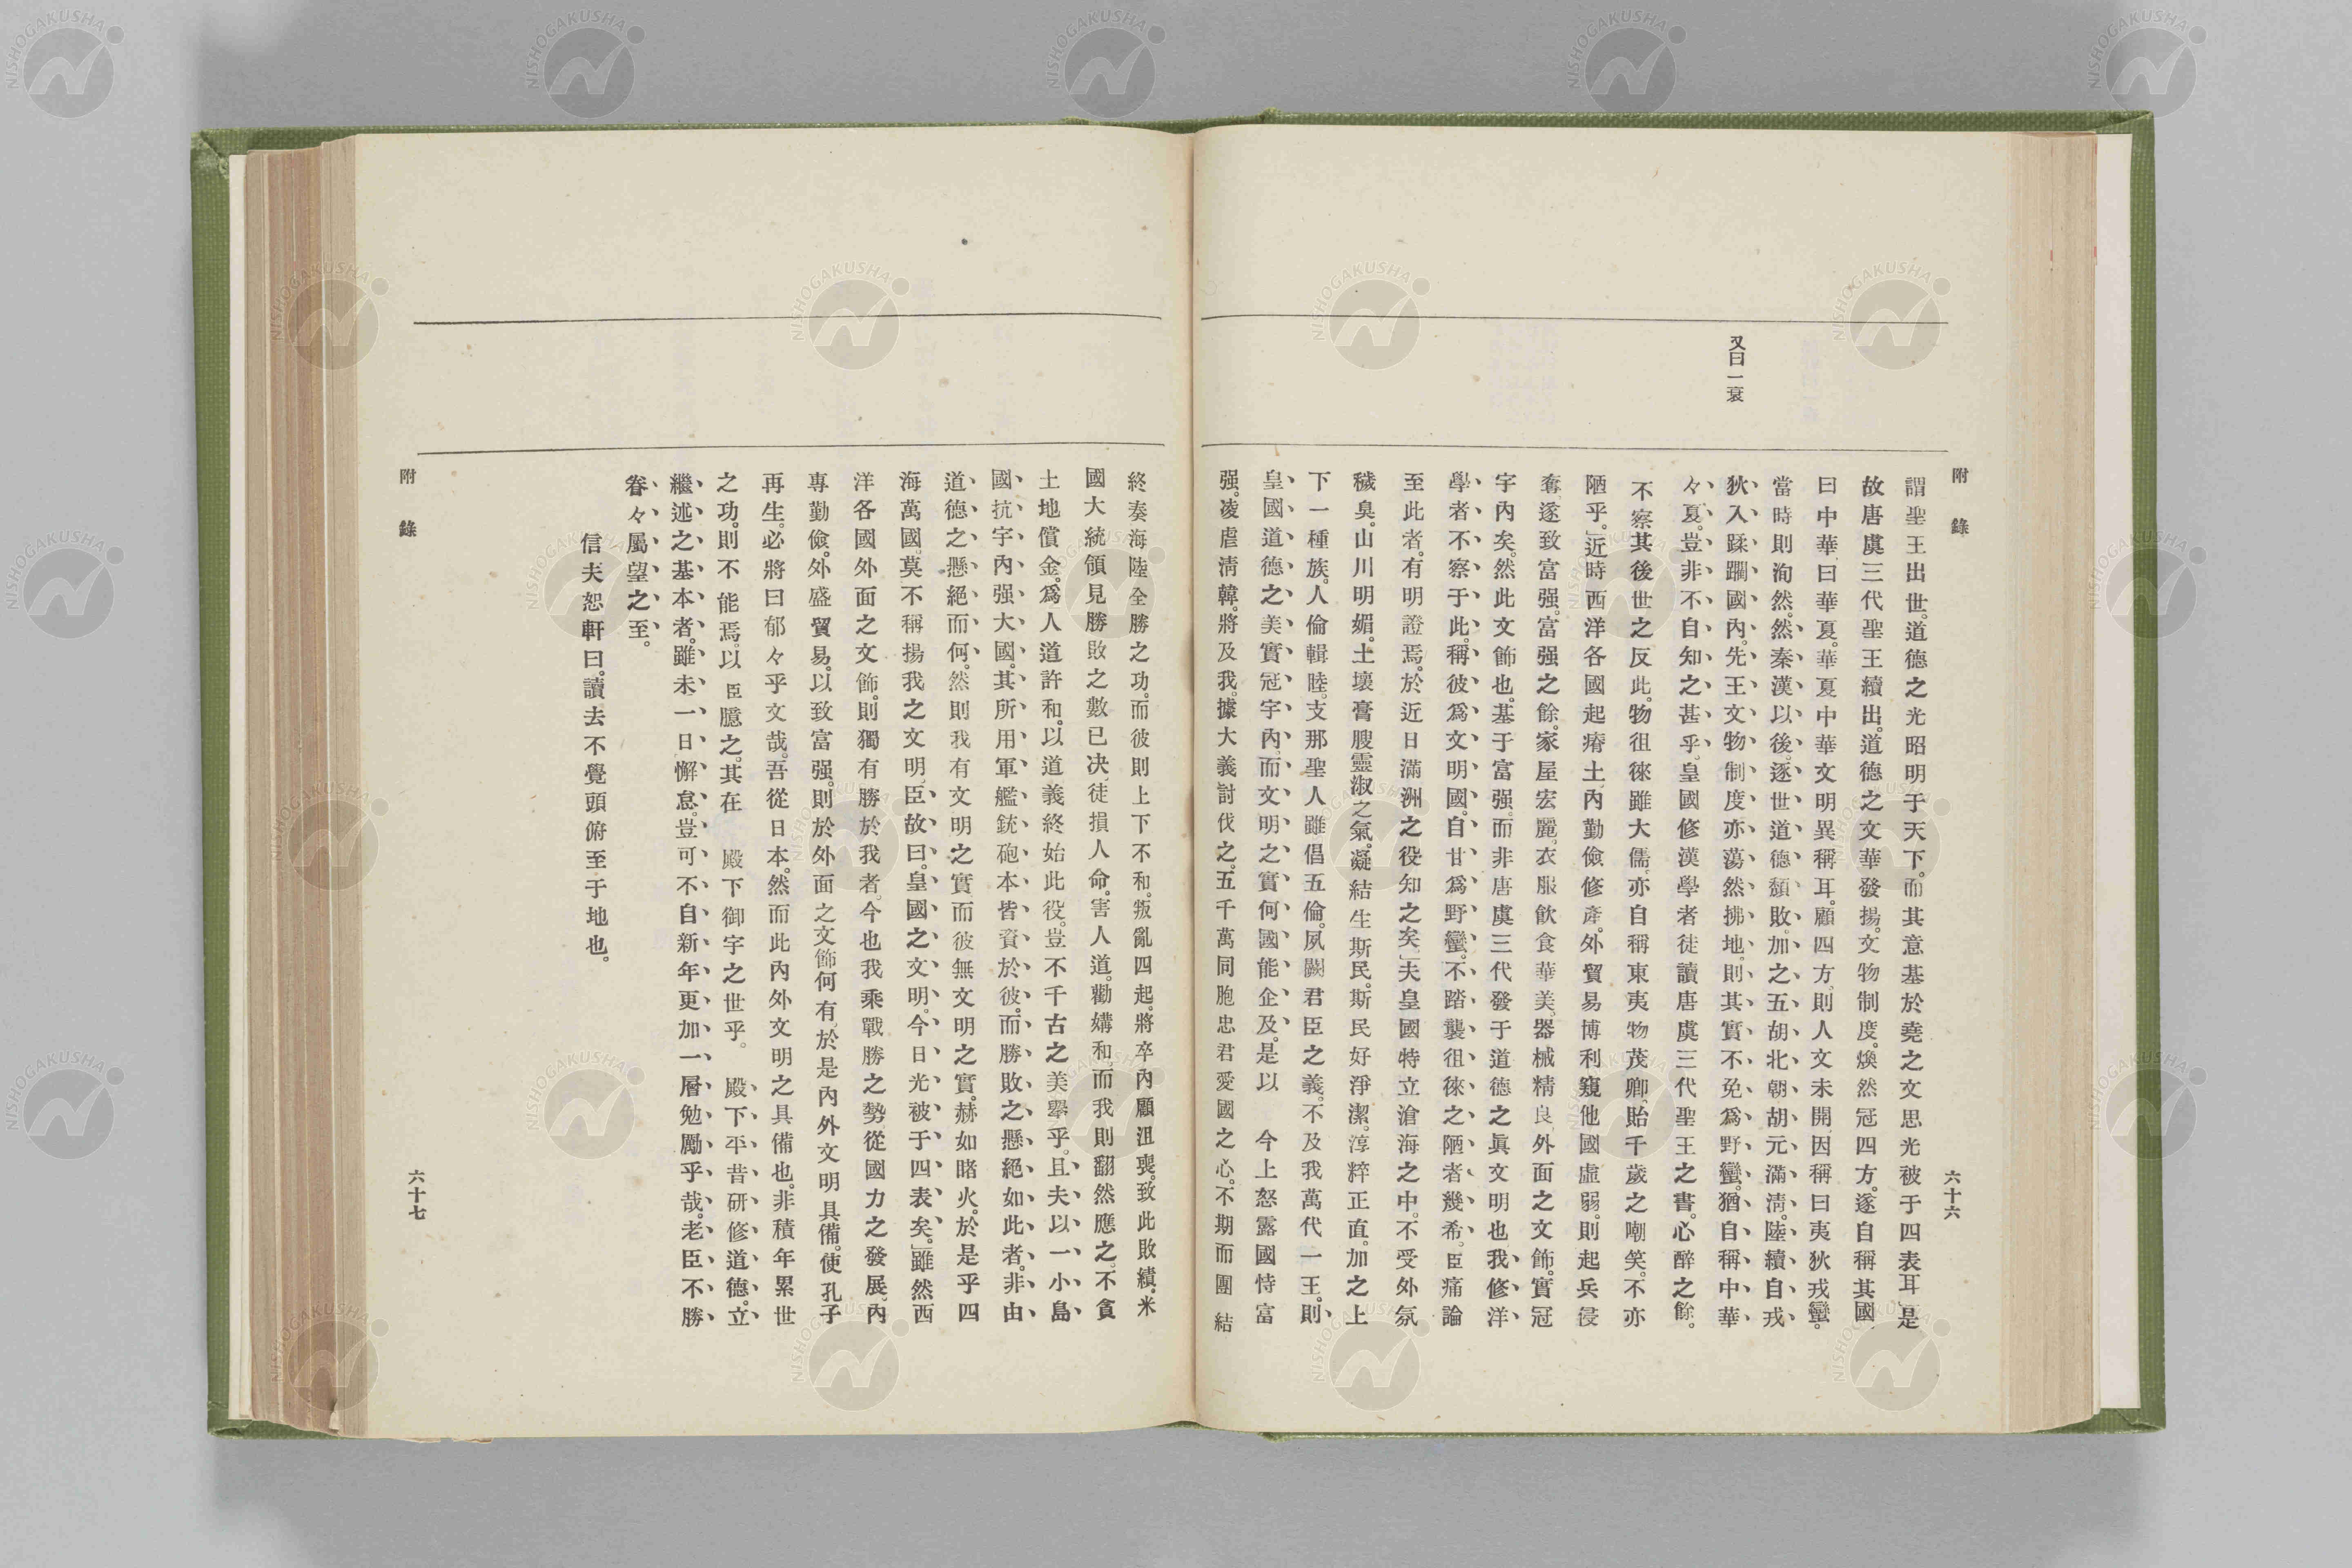 附錄
六十六
又曰一衰
謂聖王出世。道德之光昭明于天下。而其意基於堯之文思光被于四表耳。是
故唐虞三代聖王續出。道德之文華發揚。文物制度。煥然冠四方。遂自稱其國
曰中華、曰華夏。華夏中華文明異稱耳。顧四方、則人文未開、因稱曰夷狄戎蠻。
當時則洵然。然秦漢以後。逐世道德頹敗。加之五胡北朝胡元滿淸。陸續自戎
狄入蹂躙國內。先王文物制度亦蕩然拂地。則其實不免爲野蠻。猶自稱中華
々夏。豈非不自知之甚乎。皇國修漢學者徒讀唐虞三代聖王之書。心醉之餘。
不察其後世之反此。物徂徠雖大儒、亦自稱東夷物茂卿、貽千歲之嘲笑。不亦
陋乎。」近時西洋各國起瘠土、內勤儉修產。外貿易博利、窺他國虛弱。則起兵侵
奪、遂致富强。富强之餘。家屋宏麗。衣服飮食華美。器械精良、外面之文飾。實冠
宇內矣。然此文飾也。基于富强。而非唐虞三代發于道德之眞文明也。我修洋
學者不察于此。稱彼爲文明國。自甘爲野蠻。不踏襲徂徠之陋者幾希。臣痛論
至此者。有明證焉。於近日滿洲之役知之矣。」夫皇國特立滄海之中。不受外氛
穢臭。山川明媚。土壤膏腴靈淑之氣。凝結生斯民。斯民好淨潔。淳粹正直。加之上
下一種族。人倫輯睦。支那聖人雖倡五倫。夙闕君臣之義。不及我萬代一王。則
皇國道德之美實冠宇內。而文明之實何國能企及。是以　今上怒露國恃富
强。凌虐淸韓。將及我。據大義討伐之。五千萬同胞忠君愛國之心。不期而團結
終奏海陸全勝之功。而彼則上下不和。叛亂四起。將卒內顧沮喪。致此敗績。米
國大統領見勝敗之數已決、徒損人命。害人道。勸媾和、而我則翻然應之、不貪
土地償金。爲人道許和。以道義終始此役。豈不千古之美擧乎。且夫以一小島
國、抗宇內强大國。其所用軍艦銃砲本皆資於彼。而勝敗之懸絕如此者。非由
道德之懸絕而何。然則我有文明之實、而彼無文明之實。赫如睹火。於是乎四
海萬國。莫不稱揚我之文明。臣故曰。皇國之文明。今日光被于四表矣。」雖然西
洋各國外面之文飾。則獨有勝於我者。今也我乘戰勝之勢、從國力之發展。內
專勤儉。外盛貿易。以致富强。則於外面之文飾何有。於是內外文明具備。使孔子
再生。必將曰郁々乎文哉。吾從日本。然而此內外文明之具備也。非積年累世
之功。則不能焉。以臣臆之。其在　殿下御宇之世乎。　殿下平昔研修道德。立
繼述之基本者。雖未一日懈怠。豈可不自新年更加一層勉勵乎哉。老臣不勝
眷々屬望之至。
信夫恕軒曰。讀去不覺頭俯至于地也。
附錄
六十七
NISHOGAKUSHA